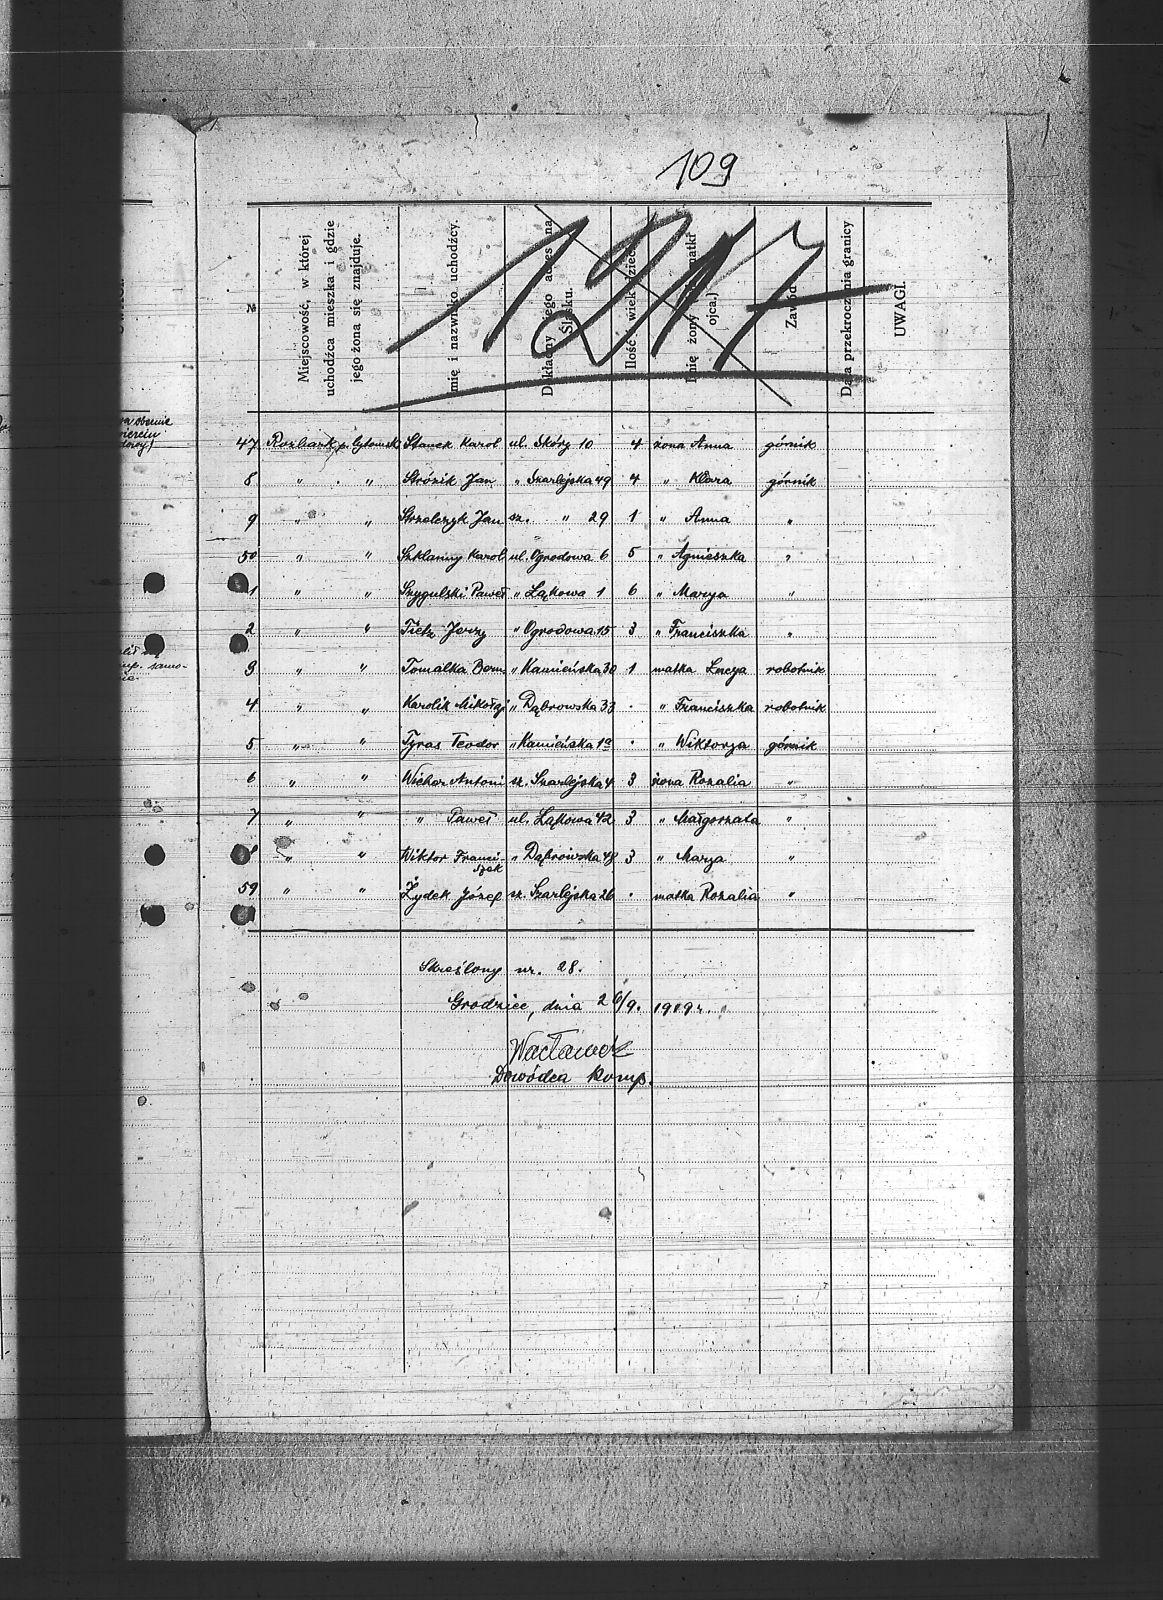 109
1217
№
Miejscowość, w której
uchodźca mieszka i gdzie
jego żona się znajduje.
mię i nazwisko uchodźcy.
Dokładny jego adres na
Śląsku.
Ilość i wiek dzieci
Imię żony matki
ojca.)
Zawód
Data przekroczenia granicy
UWAGI.
47 Rozbark p. bytomski Stanek Karol ul. Skóry 10 4 żona Anna górnik
8 „ „ Strózik Jan „ Szarlejska 49 4 „ Klara górnik
9 „ „ Strzelczyk Jan sz. „ 29 1 „ Anna „
50 „ „ Szklanny Karol ul. Ogrodowa 6 5 „ Agnieszka „
1 „ „ Szygulski Paweł „ Łąkowa 1 6 „ Marya „
2 „ „ Tietz Jerzy „ Ogrodowa 15 3 „ Franciszka „
3 „ „ Tomalka Bern „ Kamieńska 30 1 matka Lucya robotnik
4 „ „ Karolik Mikołaj „ Dąbrowska 33 · „ Franciszka robotnik
5 „ „ Tyras Teodor „ Kamieńska 19 · „ Wiktorya górnik
6 „ „ Wichor Antoni sz. Szarlejska 4 3 żona Rozalia „
7 „ „ „ Paweł ul. Łąkowa 42 3 „ Małgorzata „
„ „ Wiktor Franci- „ Dąbrowska 48 3 „ Marya „
szek
59 „ „ Żydek Józef sz. Szarlejska 26 · matka Rozalia „
Skreślony nr. 28.
Grodziec, dnia 26/9. 1919 r.
Wacławek
Dowódca Komp.